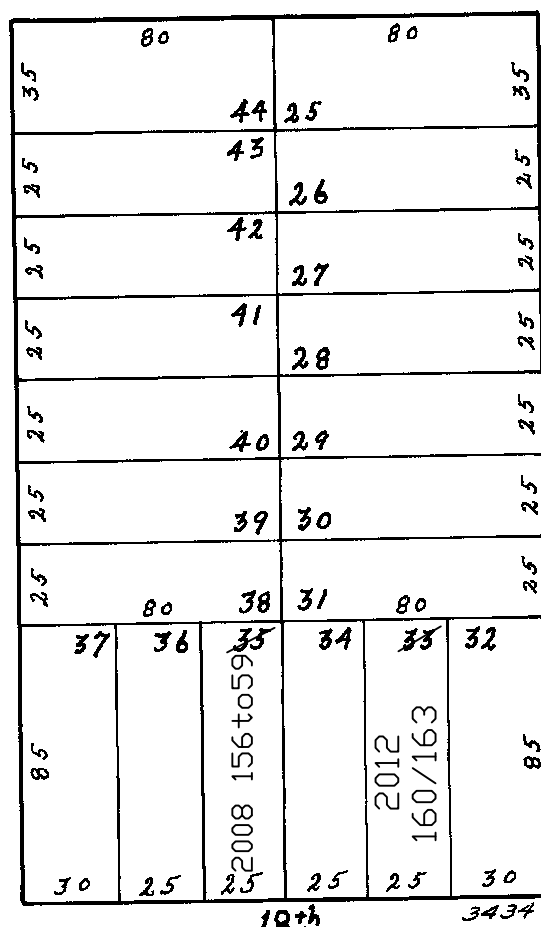 80 80
35 35
44 25
43
25 25
26
42
25 25
27
41
25 25
28
25 25
40 29
25 25
39 30
25 25
80 38 31 80
37 36 35 34 33 32
2008 156to59
2012
160/163
85 85
30 25 25 25 25 30
3434